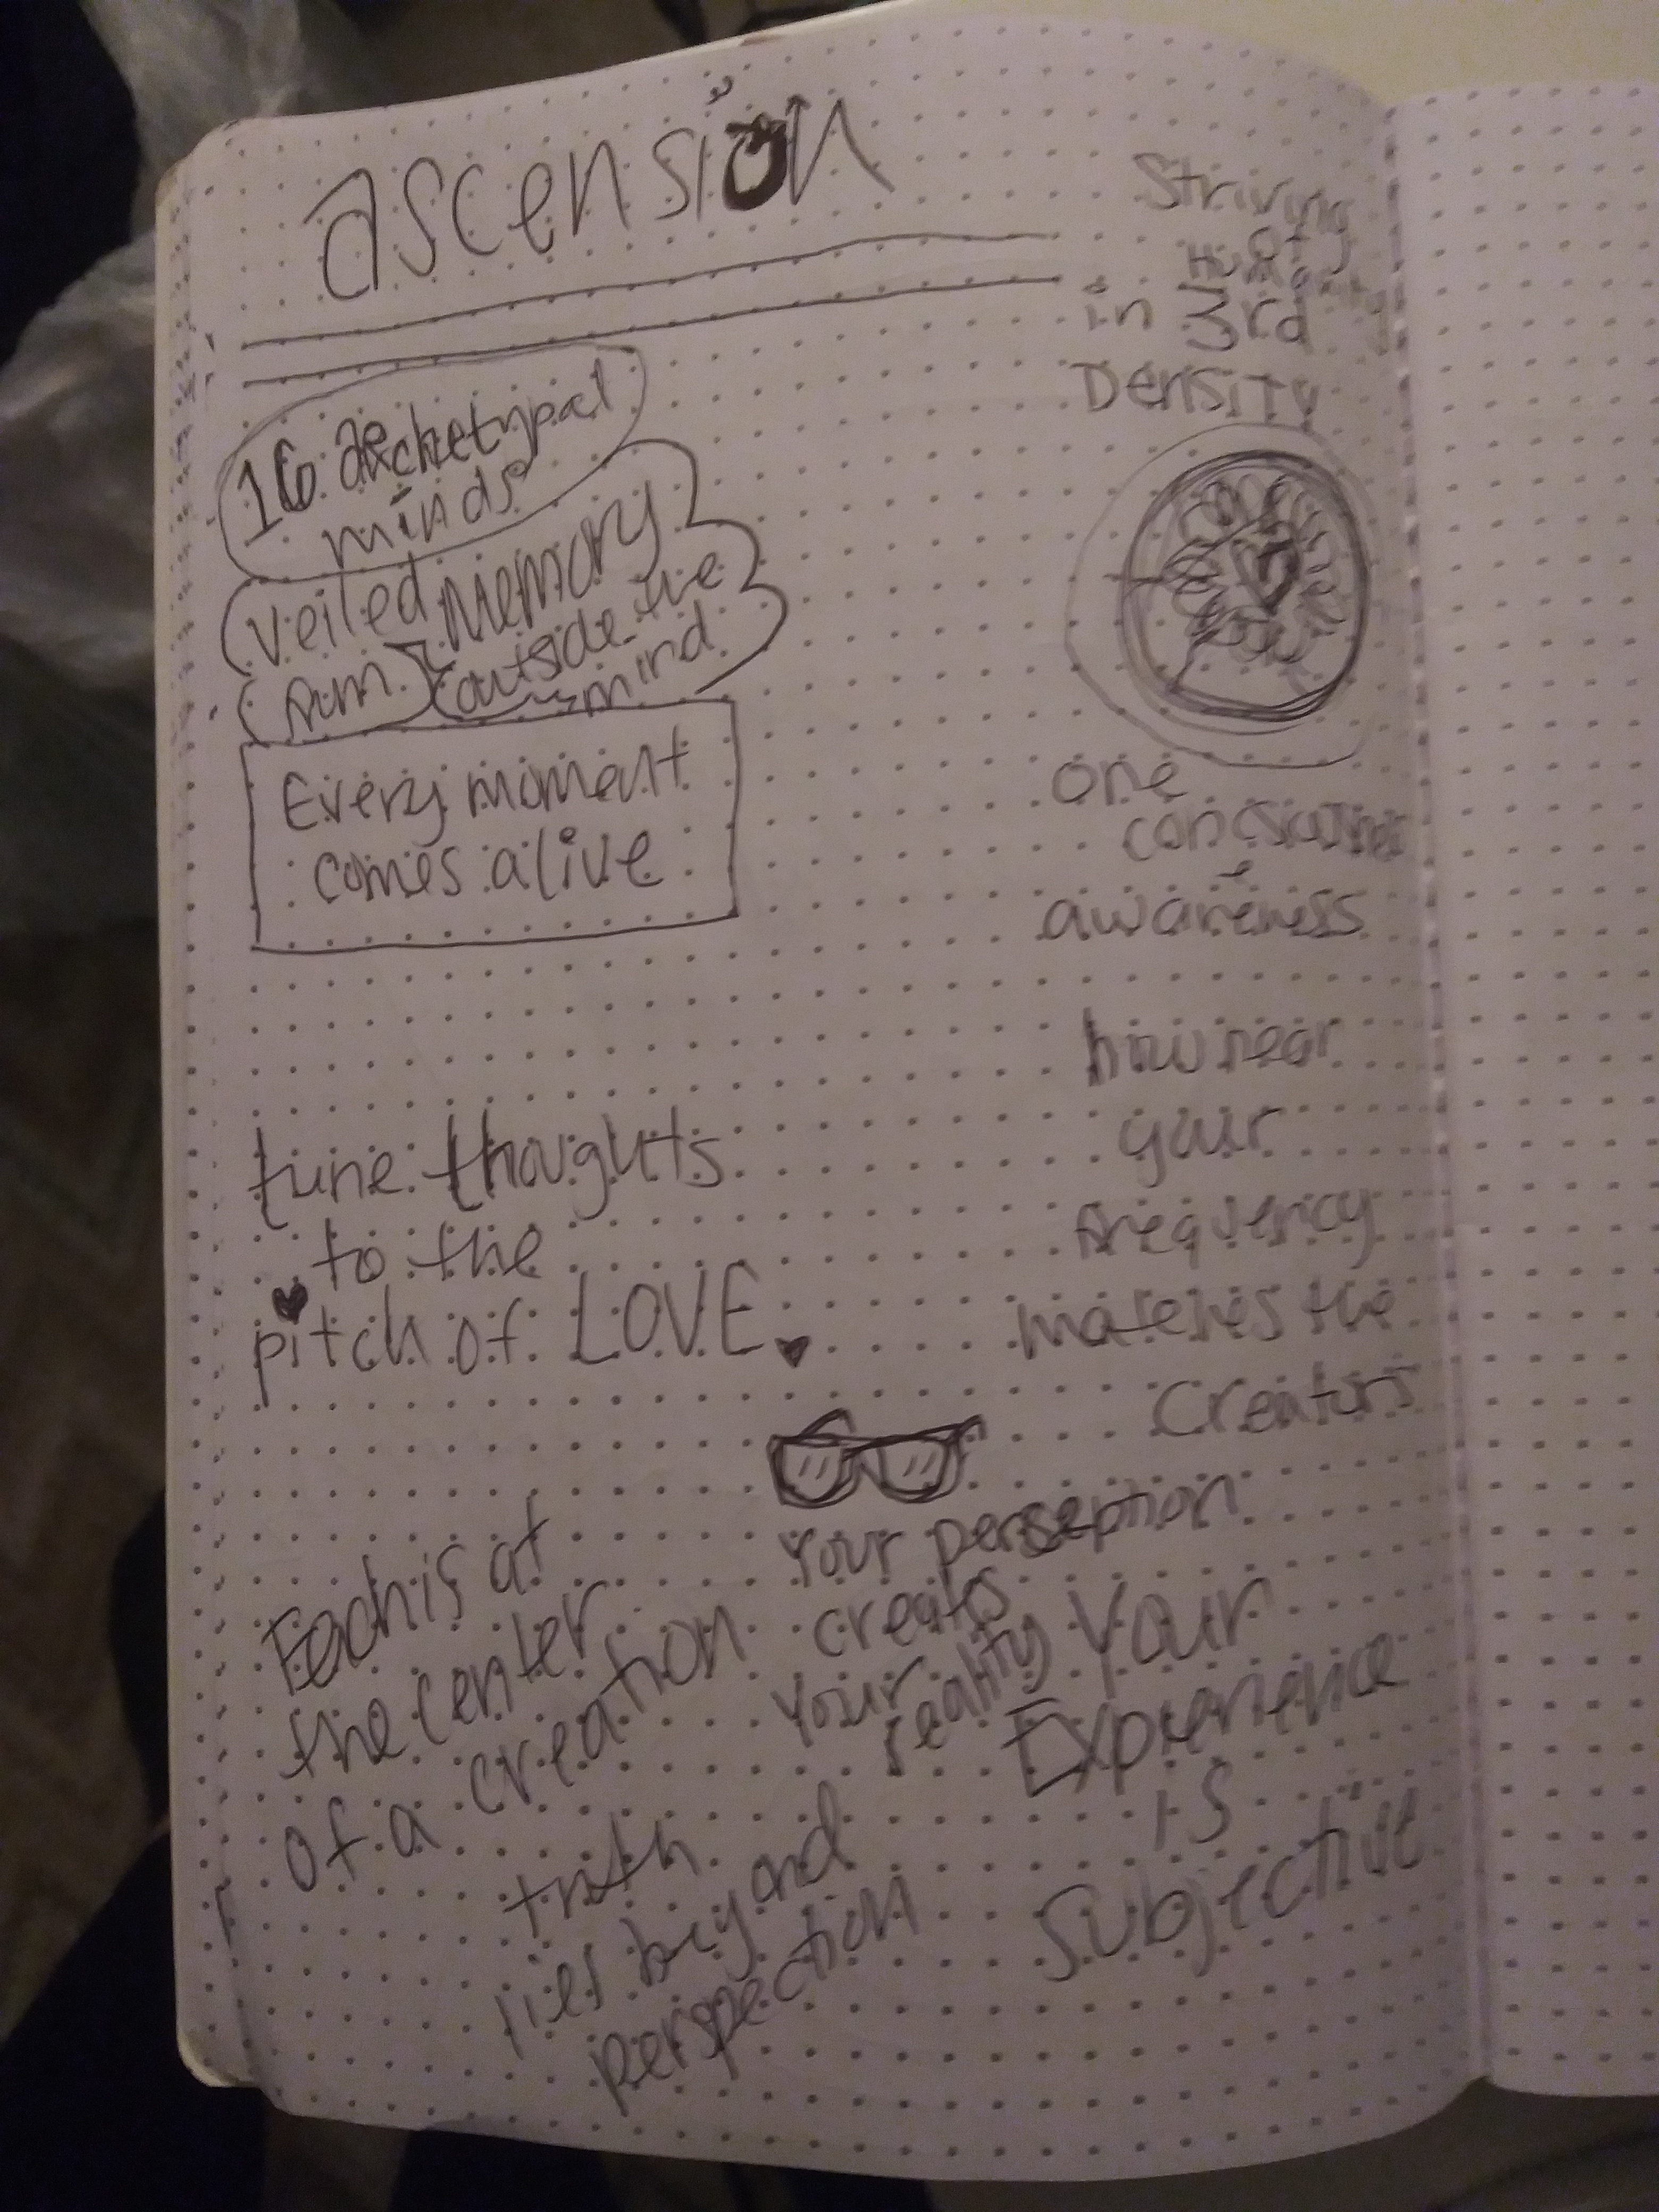 ascension
Striving
of
Humanity
in 3rd
Density
16 archetypal
minds
veiled Memory
from outside the
mind
Every moment
comes alive
one
awareness
how near
your
frequency
matches the
Creators
tune thoughts
to the
pitch of LOVE
Each is at
the center
of a creation
Your perseption
creates
your reality
Your
Experience
is
Subjective
truth
lies beyond
perspection